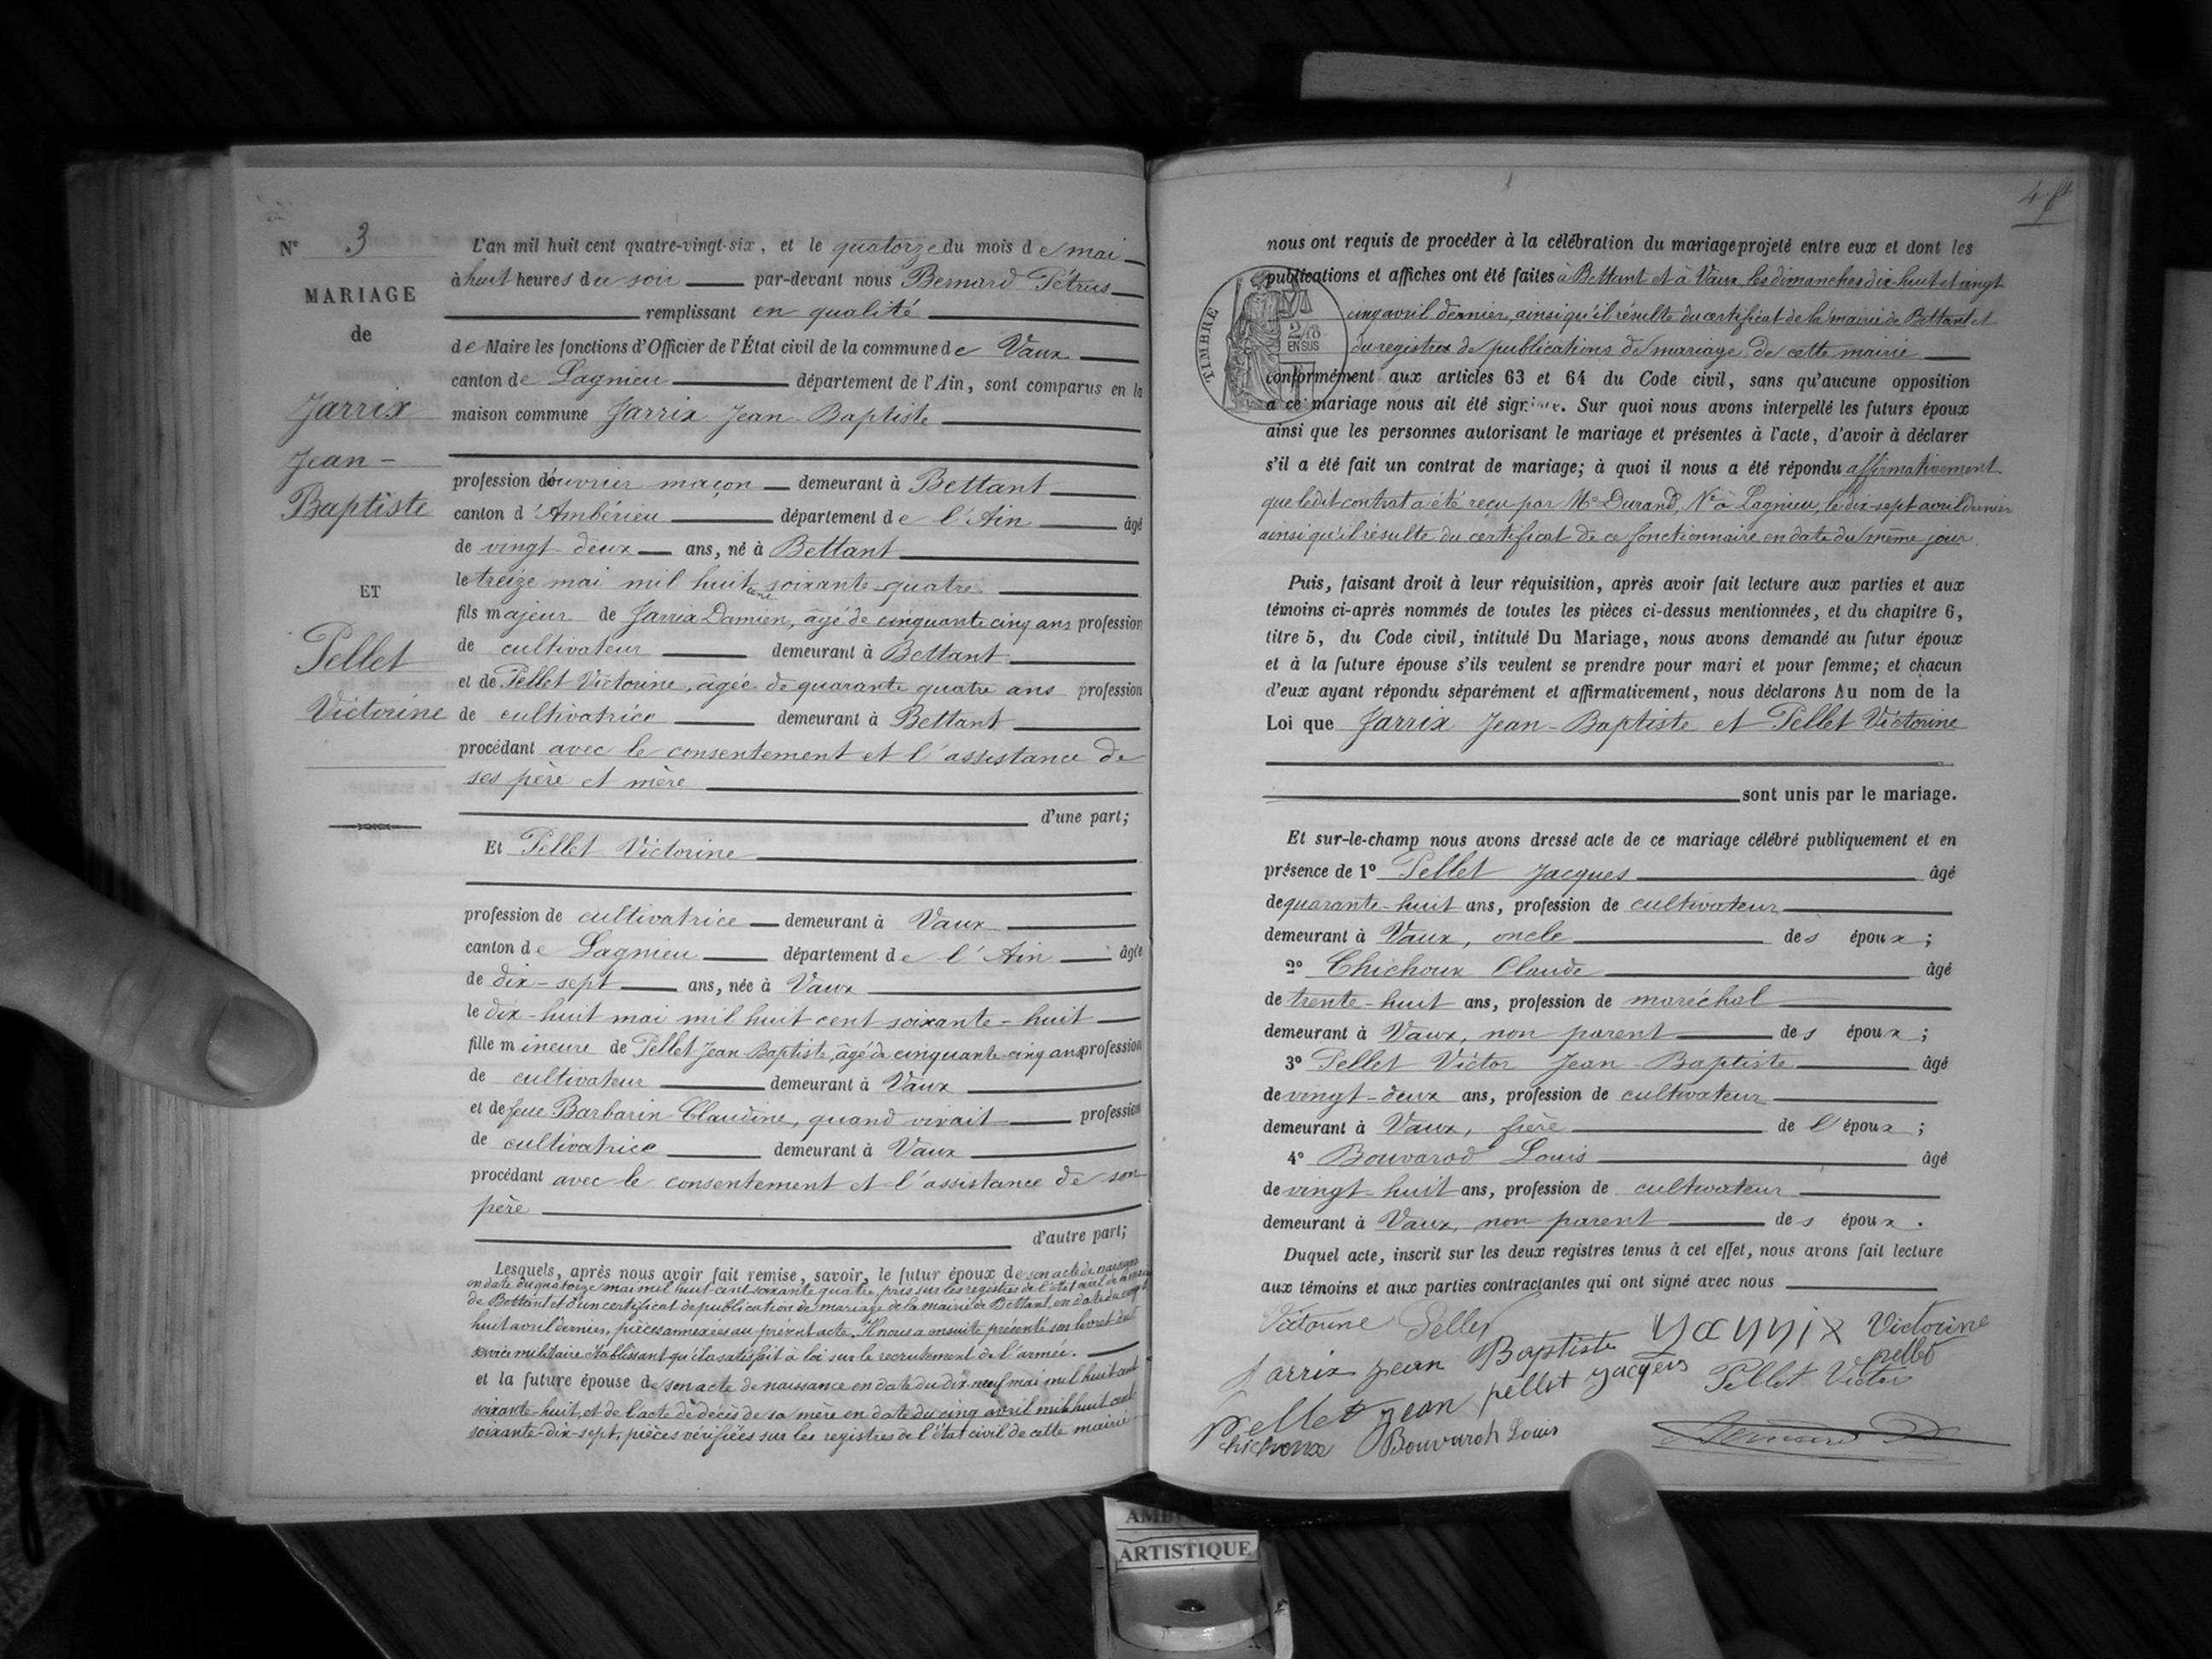 N° 3
MARIAGE
de
Jarrix
Jean-
Baptiste
ET
Pellet
Victorine
L'an mil huit cent quatre-vingt-six, et le quatorze du mois de mai
à huit heures du soir par-devant nous Bernard Pétrus
remplissant en qualité
de Maire les fonctions d'Officier de l'État civil de la commune de Vaux
canton de Lagnieu département de l'Ain, sont comparus en la
maison commune Jarrix Jean-Baptiste
profession d'ouvrier maçon demeurant à Bettant
canton d'Ambérieu département de l'Ain âgé
de vingt-deux ans, né à Bettant
le treize mai mil huit cent soixante-quatre
fils majeur de Jarrix Damien, âgé de cinquante cinq ans profession
de cultivateur demeurant à Bettant
et de Pellet Victorine, âgée de quarante quatre ans profession
de cultivatrice demeurant à Bettant
procédant avec le consentement et l'assistance de
ses père et mère
d'une part;
Et Pellet Victorine
profession de cultivatrice demeurant à Vaux
canton de Lagnieu département de l'Ain âgée
de dix-sept ans, née à Vaux
le dix-huit mai mil huit cent soixante-huit
fille mineure de Pellet Jean Baptiste, âgé de cinquante-cinq ans profession
de cultivateur demeurant à Vaux
et de feue Barbarin Claudine, quand vivait profession
de cultivatrice demeurant à Vaux
procédant avec le consentement et l'assistance de son
père
d'autre part;
Lesquels, après nous avoir fait remise, savoir, le futur époux de son acte de naissance
en date du quatorze mai mil huit cent soixante quatre, pris sur les registres de l'état civil de la mairie
de Bettant et d'un certificat de publication de mariage de la mairie de Bettant, en date du vingt
huit avril dernier, pièces annexées au présent acte. Il nous a ensuite présenté son livret de
service militaire établissant qu'il a satisfait à loi sur le recrutement de l'armée.
et la future épouse de son acte de naissance en date du dix-neuf mai mil huit cent
soixante-huit, et de l'acte de décès de sa mère en date du cinq avril mil huit cent
soixante-dix-sept, pièces vérifiées sur les registres de l'état civil de cette mairie
nous ont requis de procéder à la célébration du mariage projeté entre eux et dont les
publications et affiches ont été faites à Bettant et à Vaux, les dimanches dix-huit et vingt
cinq avril dernier, ainsi qu'il résulte du certificat de la mairie de Bettant et
du registre de publications de mariage de cette mairie
TIMBRE
2/10
EN SUS
conformément aux articles 63 et 64 du Code civil, sans qu'aucune opposition
a ce mariage nous ait été signifiée. Sur quoi nous avons interpellé les futurs époux
ainsi que les personnes autorisant le mariage et présentes à l'acte, d'avoir à déclarer
s'il a été fait un contrat de mariage; à quoi il nous a été répondu affirmativement
que ledit contrat a été reçu par Me Durand, Nre à Lagnieu, le dix-sept avril dernier
ainsi qu'il résulte du certificat de ce fonctionnaire en date du même jour.
Puis, faisant droit à leur réquisition, après avoir fait lecture aux parties et aux
témoins ci-après nommés de toutes les pièces ci-dessus mentionnées, et du chapitre 6,
titre 5, du Code civil, intitulé Du Mariage, nous avons demandé au futur époux
et à la future épouse s'ils veulent se prendre pour mari et pour femme; et chacun
d'eux ayant répondu séparément et affirmativement, nous déclarons Au nom de la
Loi que Jarrix Jean-Baptiste et Pellet Victorine
sont unis par le mariage.
Et sur-le-champ nous avons dressé acte de ce mariage célébré publiquement et en
présence de 1° Pellet Jacques âgé
de quarante-huit ans, profession de cultivateur
demeurant à Vaux, oncle des époux;
2° Chichoux Claude âgé
de trente-huit ans, profession de maréchal
demeurant à Vaux, non parent des époux;
3° Pellet Victor Jean-Baptiste âgé
de vingt-deux ans, profession de cultivateur
demeurant à Vaux, frère de l'époux;
4° Bouvarod Louis âgé
de vingt-huit ans, profession de cultivateur
demeurant à Vaux, non parent des époux.
Duquel acte, inscrit sur les deux registres tenus à cet effet, nous avons fait lecture
aux témoins et aux parties contractantes qui ont signé avec nous
Victorine Pellet
Jarrix jean Baptiste Yarrix Victorine
pellet
Pellet jean pellet jacques Pellet Victor
chichoux Bouvarod Louis Bernard
ARTISTIQUE